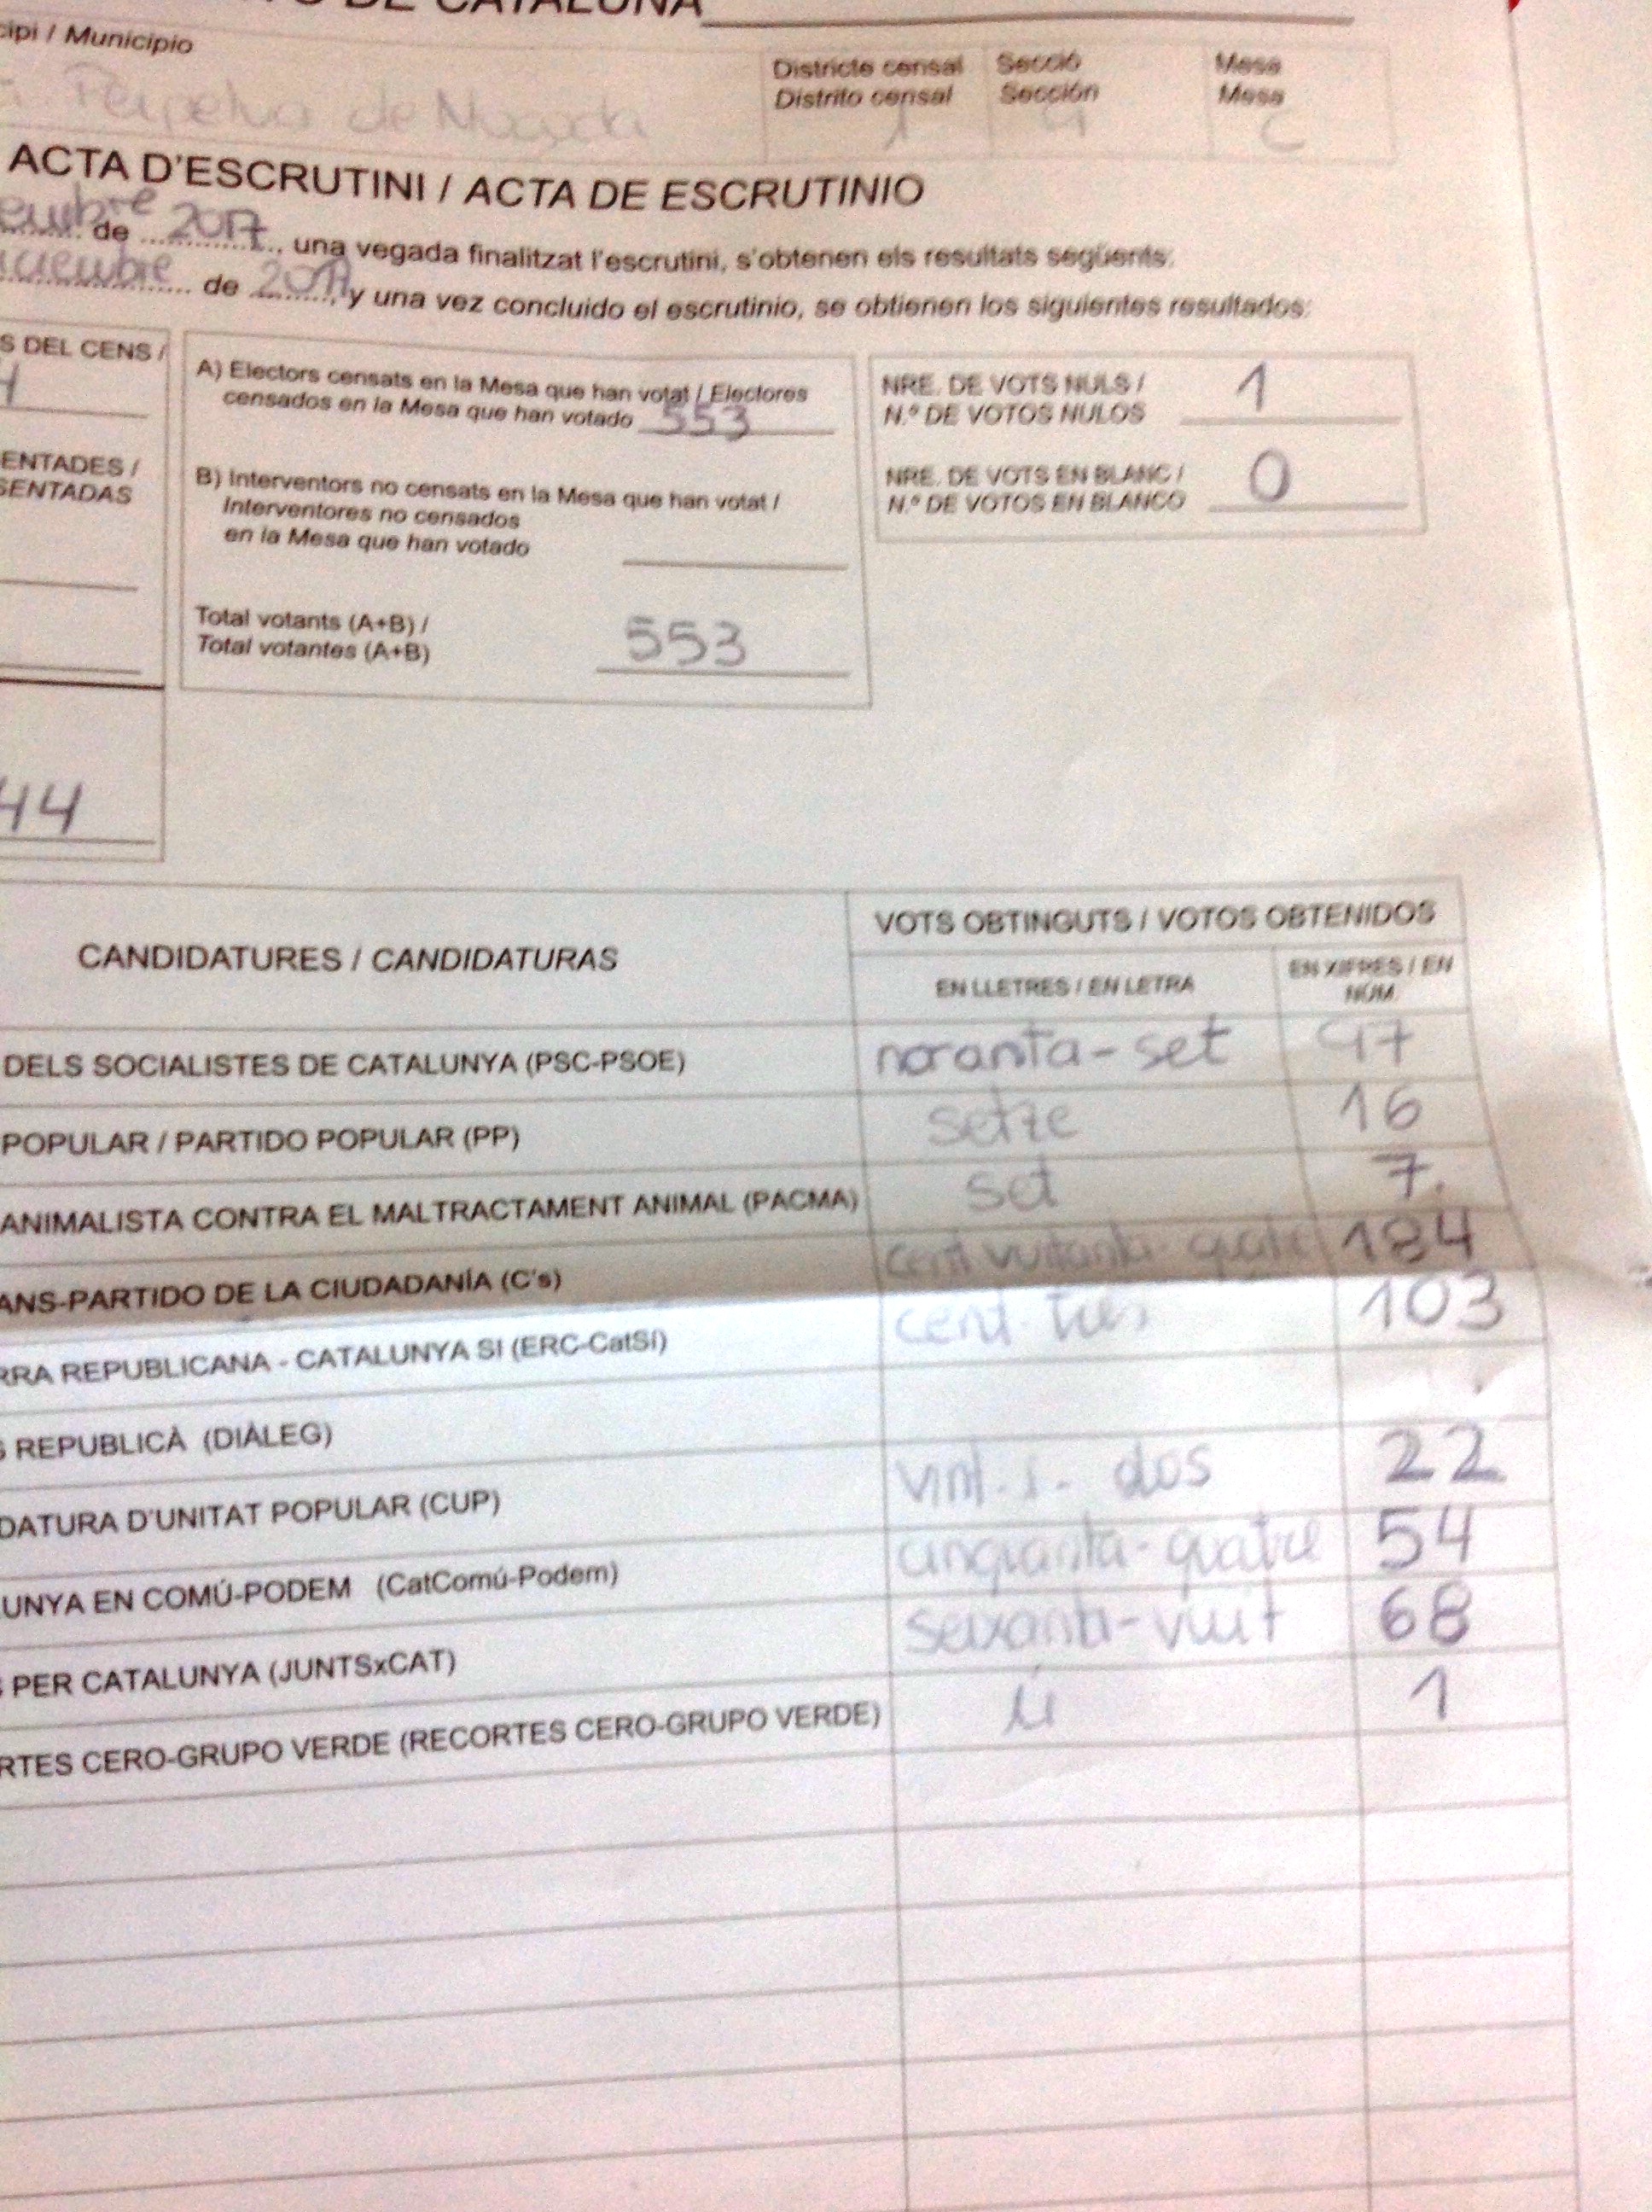 DE CATALUÑA
cipi / Municipio
Districte censal Secció Mesa
Distrito censal Sección Mesa
Perpetua de Mogoda 1
ACTA D'ESCRUTINI / ACTA DE ESCRUTINIO
embre de 2017, una vegada finalitzat l'escrutini, s'obtenen els resultats següents:
iciembre de 2017, y una vez concluido el escrutinio, se obtienen los siguientes resultados:
S DEL CENS /
4
A) Electors censats en la Mesa que han votat / Electores
censados en la Mesa que han votado 553
NRE. DE VOTS NULS / 1
N.º DE VOTOS NULOS
ENTADES /
SENTADAS
B) Interventors no censats en la Mesa que han votat /
Interventores no censados
en la Mesa que han votado
NRE. DE VOTS EN BLANC / 0
N.º DE VOTOS EN BLANCO
Total votants (A+B) /
Total votantes (A+B) 553
44
CANDIDATURES / CANDIDATURAS
VOTS OBTINGUTS / VOTOS OBTENIDOS
EN LLETRES / EN LETRA
EN XIFRES / EN
NÚM.
DELS SOCIALISTES DE CATALUNYA (PSC-PSOE) noranta-set 97
POPULAR / PARTIDO POPULAR (PP) setze 16
ANIMALISTA CONTRA EL MALTRACTAMENT ANIMAL (PACMA) set 7.
ANS-PARTIDO DE LA CIUDADANÍA (C's) cent vuitanta-quatre 184
RRA REPUBLICANA - CATALUNYA SI (ERC-CatSí) cent-tres 103
S REPUBLICÀ (DIÀLEG)
DATURA D'UNITAT POPULAR (CUP) vint-i-dos 22
UNYA EN COMÚ-PODEM (CatComú-Podem) cinquanta-quatre 54
S PER CATALUNYA (JUNTSxCAT) seixanta-vuit 68
RTES CERO-GRUPO VERDE (RECORTES CERO-GRUPO VERDE) ú 1